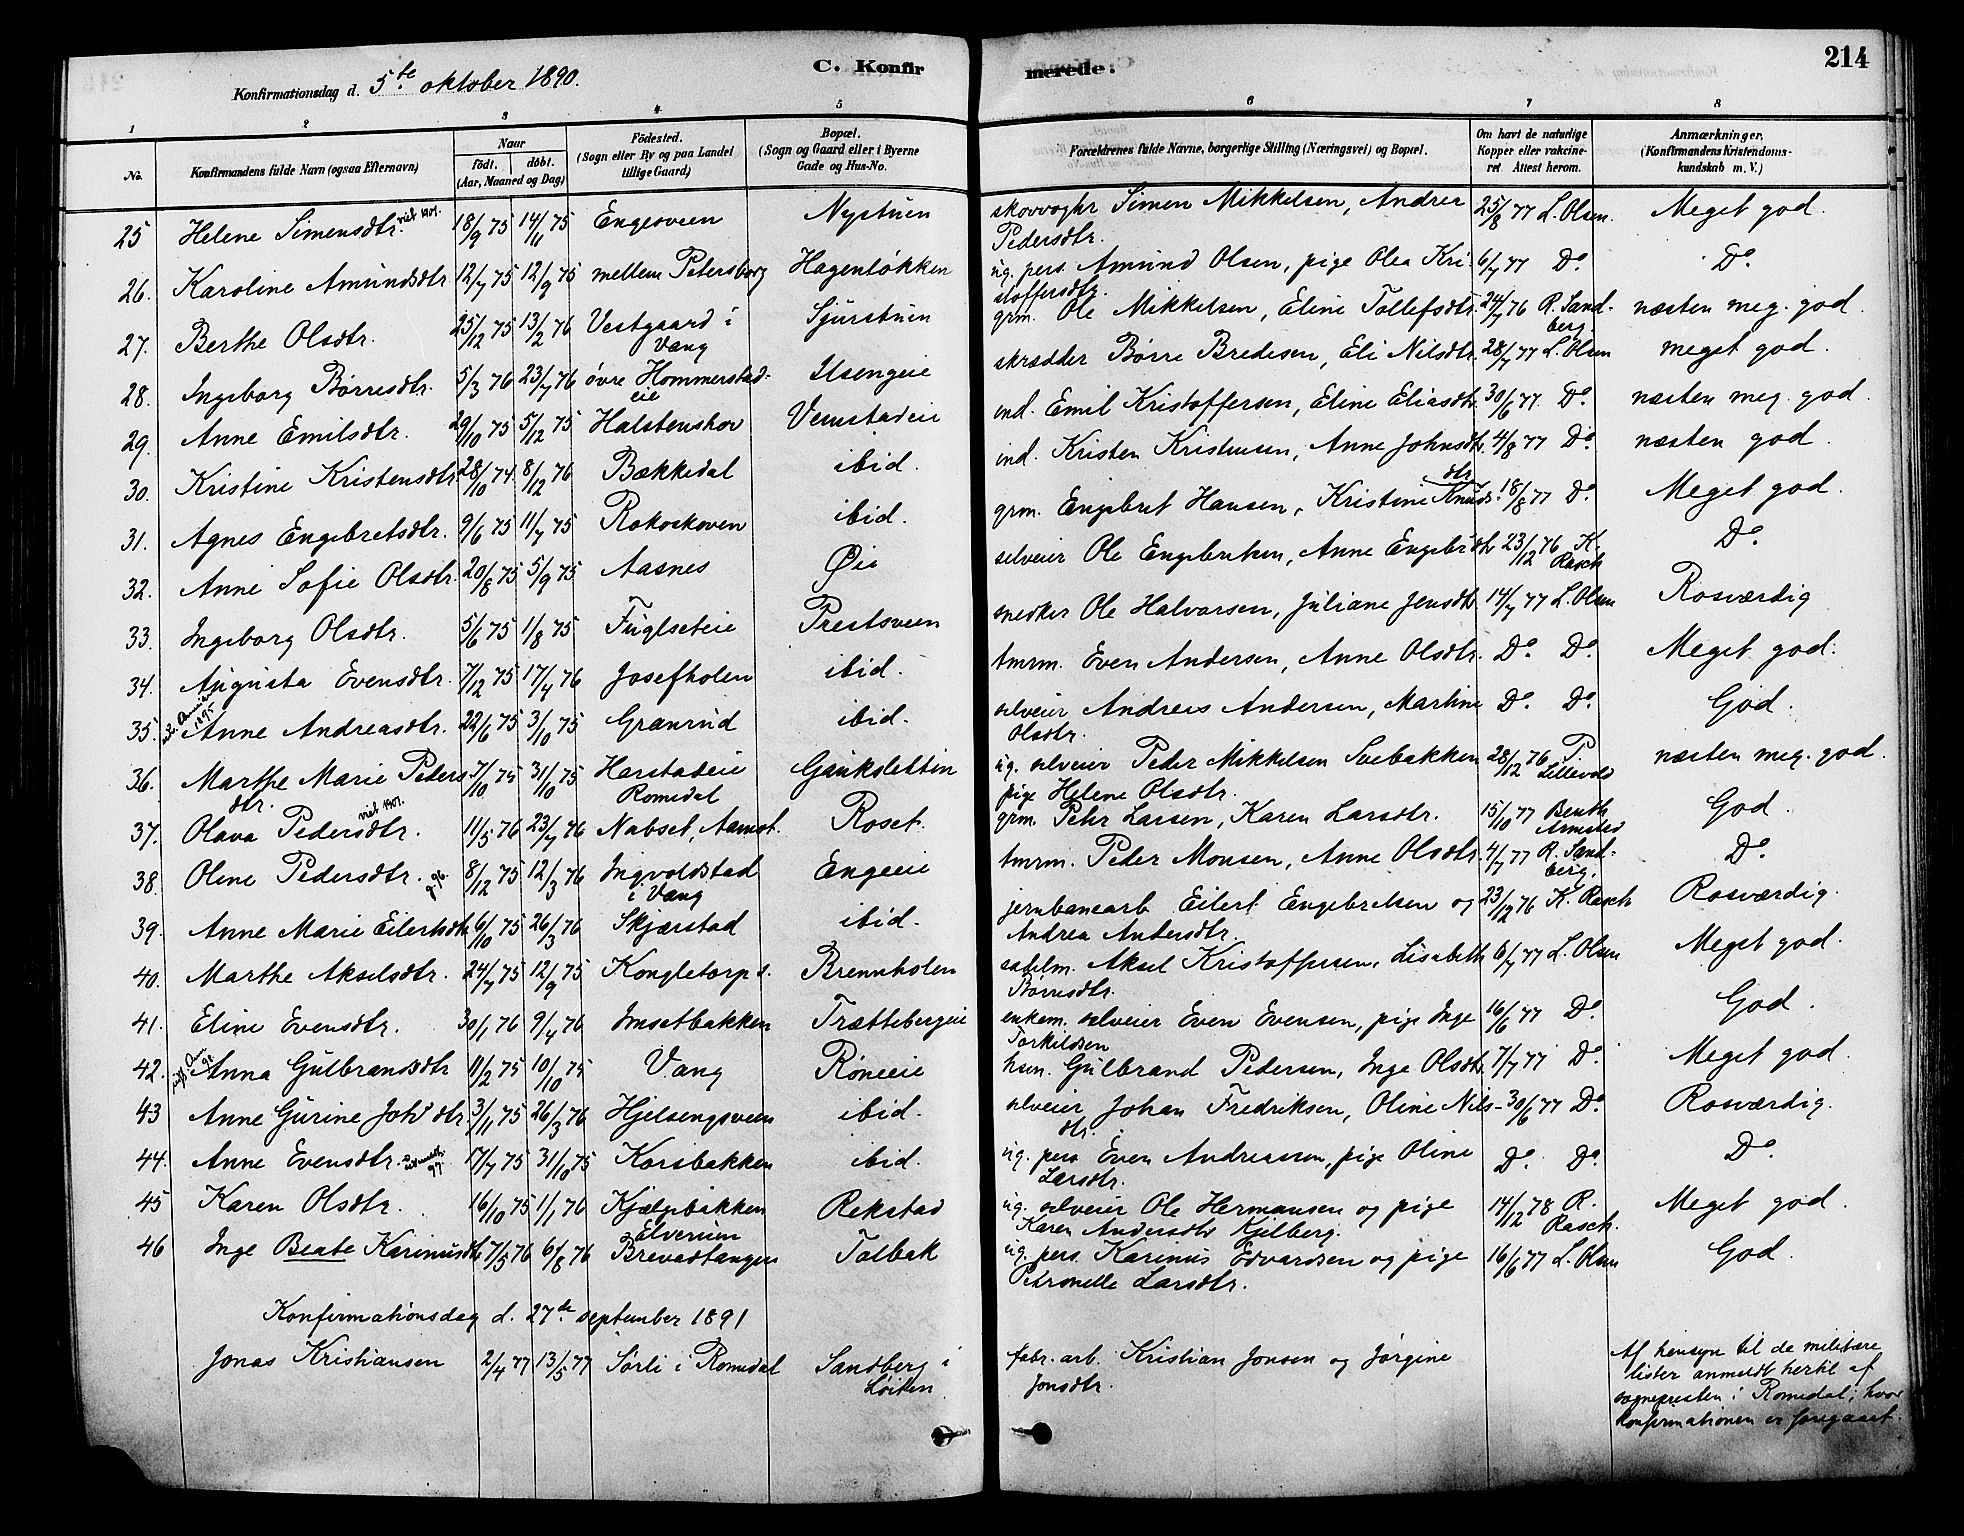 C. Konfir
merede.
214
Konfirmationsdag d. 5te oktober 1890.
1 2 3 4 5 6 7 8
No. Konfirmandens fulde Navn (ogsaa Efternavn) Naar födt. döbt. (Aar, Maaned og Dag) Födested. (Sogn eller By og paa Landet tillige Gaard) Bopæl. (Sogn og Gaard eller i Byerne Gade og Hus-No. Forældrenes fulde Navne, borgerlige Stilling (Næringsvei) og Bopæl. Om havt de naturlige Kopper eller vakcineret Attest herom. Anmærkninger, (Konfirmandens Kristendomskundskab m. V.)
25 Helene Simensdtr. 1901. 18/9 75 14/11 75 Engesveen Nystuen skovvogter Simen Mikkelsen, Andrea Pedersdtr. 25/8 77 L. Olsen. Meget god.
26. Karoline Amundsdtr 12/7 75 12/9 75 mellem Petersborg Hagenløkken ug. pers. Amund Olsen, pige Olea Kristoffersdtr. 6/7 77 Do. Do.
27. Berthe Olsdtr. 25/12 75 13/2 76 Vestgaard i Vang Sjurstuen grm. Ole Mikkelsen, Eline Tollefsdtr. 24/7 76 R. Sandberg næsten meg. god.
28. Ingeborg Børresdtr. 5/3 76 23/7 76 øvre Hommerstadeie Ilsengeie skrædder Børre Bredesen, Eli Nilsdtr. 28/7 77 L. Olsen meget god.
29. Anne Emilsdtr. 29/10 75 5/12 75 Halstenshov Vemstadeie ind. Emil Kristoffersen, Eline Eliasdtr 30/6 77 Do. næsten meg. god.
30. Kristine Kristensdtr. 28/10 74 8/12 76 Bækkedal ibid. ind. Kristen Kristensen, Anne Johnsdtr. 4/8 77 Do næsten god.
31. Agnes Engebretsdtr. 9/6 75 11/7 75 Rokoskoven ibid. grm. Engebret Hansen, Kristine Knudsdtr. 18/8 77 Do. Meget god.
32. Anne Sofie Olsdtr. 20/8 75 5/9 75 Aasnes Øie selveier Ole Engebretsen, Anne Engebrdtr 23/12 76 K. Rasch Do.
33. Ingeborg Olsdtr. 5/6 75 1/8 75 Fuglseteie Prestsveen snedker Ole Halvorsen, Juliane Jensdtr 14/7 77 L. Olsen Rosværdig
34. Augusta Evensdtr. 7/12 75 17/4 76 Josefholen ibid. tmrm. Even Andersen, Anne Olsdtr. Do. Do. Meget god.
35. Anne Andreasdtr. 22/6 75 3/10 75 Granrud ibid. selveier Andreas Andersen, Martine Olsdtr. Do. Do. God.
36. Marthe Marie Pedersdtr. 7/10 75 31/10 75 Harstadeie Romedal Gaukslettten ug. selveier Peder Mikkelsen Svebakken pige Helene Olsdtr. 28/12 76 P. Lillevold næsten meg. god.
37. Olava Pedersdtr. 1901. 11/5 76 23/7 76 Nabset, Aamot. Roset. grm. Peter Larsen, Karen Larsdtr. 15/10 77 Benth Armsted God.
38 Oline Pedersdtr. 8/12 75 12/3 76 Ingvoldstad i Vang Engeeie tmrm. Peder Monsen, Anne Olsdtr. 4/7 77 R. Sandberg. Do.
39. Anne Marie Eilertsdtr 6/10 75 26/3 76 Skjærstad ibid. jernbanearb Eilert Engebretsen og Andrea Andersdtr. 23/12 76 K. Rasch Rosværdig.
40. Marthe Akselsdtr. 24/7 75 12/9 75 Kongletorp s. Brennholen sadelm. Aksel Kristoffersen, Lisabeth Børresdtr. 6/7 77 L. Olsen Meget god.
41. Eline Evensdtr. 30/1 76 9/4 76 Imsetbakken Trættebergeie enkem. selveier Even Evensen, pige Inge Torkildsen 16/6 77 Do. God.
42. Anna Gulbrandsdtr 11/2 75 10/10 75 Vang Røneeie hsm. Gulbrand Pedersen, Inge Olsdtr. 7/7 77 Do. Meget god.
43 Anne Gurine Johsdtr. 3/11 75 26/3 76 Hjelsengsveen ibid. selveier Johan Fredriksen, Oline Nilsdtr. 30/6 77 Do. Rosværdig.
44. Anne Evensdtr. 97. 17/7 75 31/10 75 Korsbakken ibid. ug. pers Even Andreassen, pige Oline Larsdtr. Do. Do. Do.
45 Karen Olsdtr. 16/10 75 1/1 76 Kjølebakken Elverum Rekstad ug. selveier Ole Hermansen og pige Karen Andersdtr Kjelberg. 14/12 78 R. Rasch. Meget god.
46 Inge Beate Karinusdtr 7/5 76 6/8 76 Brevadtangen Tolbak ug. pers. Karinus Edvardsen og pige Petronelle Larsdtr. 16/6 77 L. Olsen God.
Konfirmationsdag d. 27de september 1891
Jonas Kristiansen 2/4 77 13/5 77 Sørli i Romedal Sandberg i Løiten fabr. arb. Kristian Jonsen og Jørgine Jonsdtr.
Af hensyn til de militære
lister anmeldt hertil af
sognepresten i Romedal, hvor
konfirmationen er foregaaet.